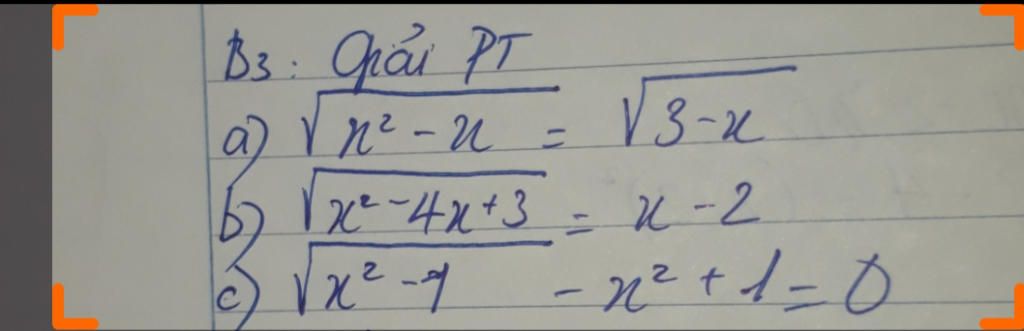 B3: Giải PT
a) √(x² - x) = √(3 - x)
b) √(x² - 4x + 3) = x - 2
c) √(x² - 1) - x² + 1 = 0